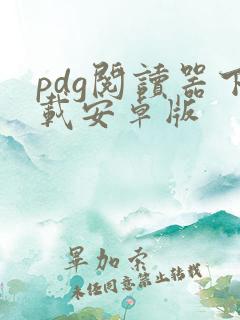 pdg閱讀器下
載安卓版
畢加索
未经同意禁止转载